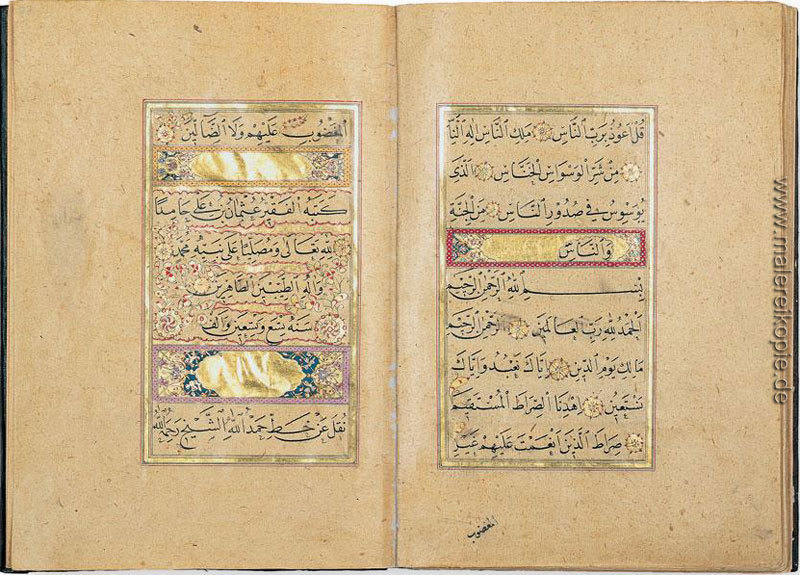 قُلْ اَعُوذُ بِرَبِّ النَّاسِ مَلِكِ النَّاسِ اِلٰهِ النَّاسِ
مِنْ شَرِّ الْوَسْوَاسِ الْخَنَّاسِ اَلَّذِى
يُوَسْوِسُ فِى صُدُورِ النَّاسِ مِنَ الْجِنَّةِ
وَالنَّاسِ
بِسْمِ اللّٰهِ الرَّحْمٰنِ الرَّحِيمِ
اَلْحَمْدُ لِلّٰهِ رَبِّ الْعَالَمِينَ اَلرَّحْمٰنِ الرَّحِيمِ
مَالِكِ يَوْمِ الدِّينِ اِيَّاكَ نَعْبُدُ وَاِيَّاكَ
نَسْتَعِينُ اِهْدِنَا الصِّرَاطَ الْمُسْتَقِيمَ
صِرَاطَ الَّذِينَ اَنْعَمْتَ عَلَيْهِمْ غَيْرِ
المغضوب
الْمَغْضُوبِ عَلَيْهِمْ وَلَا الضَّالِّينَ
كتبه الفقير عثمان بن علي حامدًا
لله تعالى ومصليًا على نبيه محمد
وآله الطيبين الطاهرين
سنة تسع وتسعين والف
نقل عن خط حمد الله الشيخ رحمه الله
www.malereikopie.de